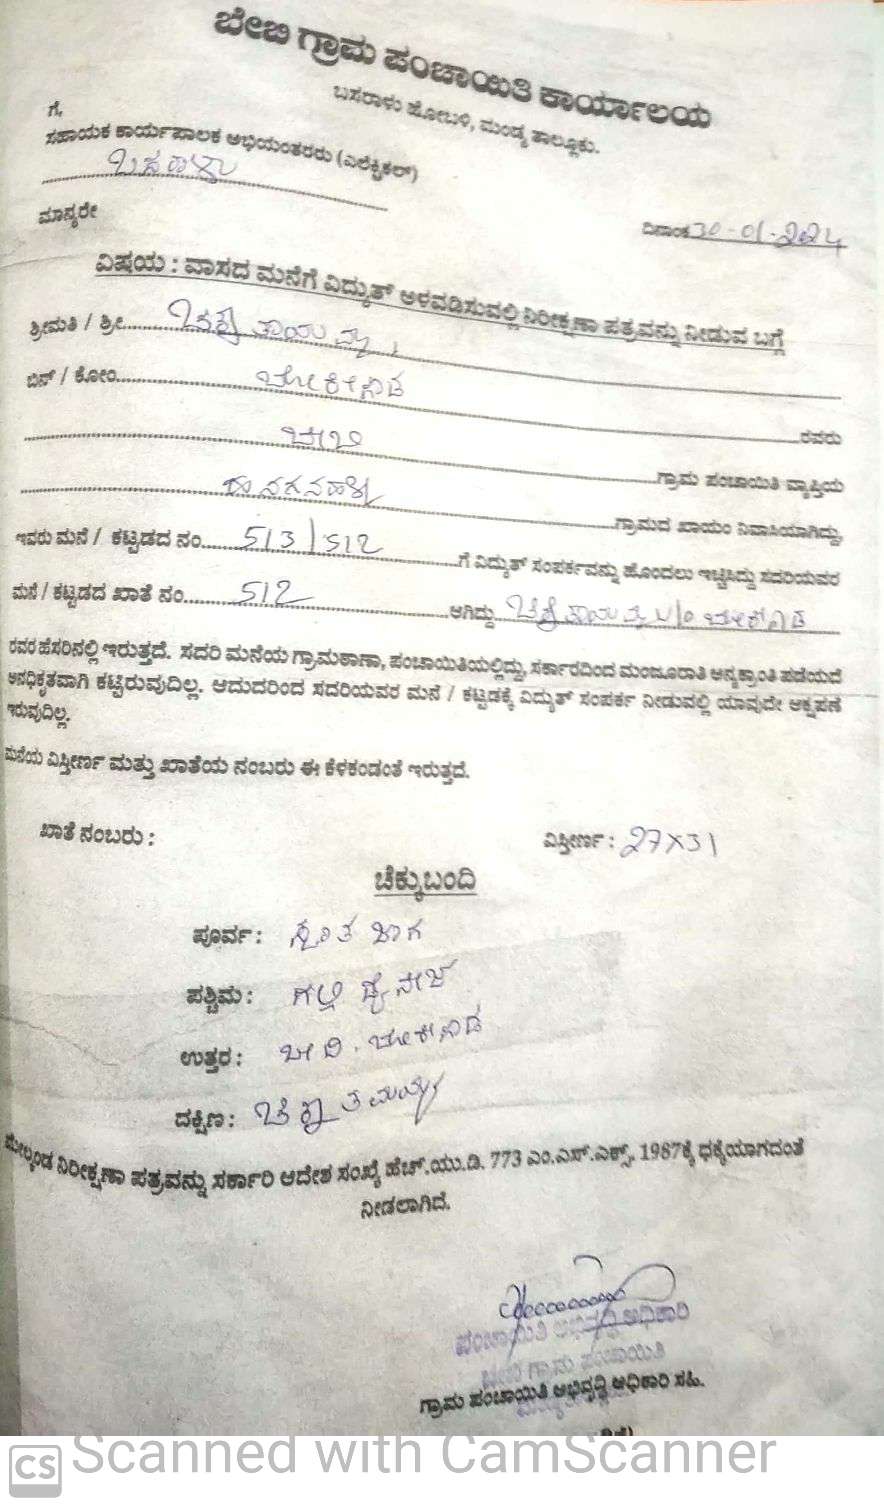 ಬೇಬಿ ಗ್ರಾಮ ಪಂಚಾಯಿತಿ ಕಾರ್ಯಾಲಯ
ಬಸರಾಳು ಹೋಬಳಿ, ಮಂಡ್ಯ ತಾಲ್ಲೂಕು.
ಗೆ,
ಸಹಾಯಕ ಕಾರ್ಯಪಾಲಕ ಅಭಿಯಂತರರು (ಎಲೆಕ್ಟ್ರಿಕಲ್)
ಬಸರಾಳು
ಮಾನ್ಯರೇ
ದಿನಾಂಕ 30-01-2024
ವಿಷಯ : ವಾಸದ ಮನೆಗೆ ವಿದ್ಯುತ್ ಅಳವಡಿಸುವಲ್ಲಿ ನಿರೀಕ್ಷಣಾ ಪತ್ರವನ್ನು ನೀಡುವ ಬಗ್ಗೆ
ಶ್ರೀಮತಿ / ಶ್ರೀ ಚಿಕ್ಕತಾಯಮ್ಮ
ಬಿನ್ / ಕೋಂ ಬೋರೇಗೌಡ ರವರು
ಬೇಬಿ ಗ್ರಾಮ ಪಂಚಾಯಿತಿ ವ್ಯಾಪ್ತಿಯ
ಗ್ರಾಮದ ಖಾಯಂ ನಿವಾಸಿಯಾಗಿದ್ದು,
ಇವರು ಮನೆ / ಕಟ್ಟಡದ ನಂ. 513/512 ಗೆ ವಿದ್ಯುತ್ ಸಂಪರ್ಕವನ್ನು ಹೊಂದಲು ಇಚ್ಛಿಸಿದ್ದು ಸದರಿಯವರ
ಮನೆ / ಕಟ್ಟಡದ ಖಾತೆ ನಂ. 512 ಆಗಿದ್ದು ಚಿಕ್ಕತಾಯಮ್ಮ
ರವರ ಹೆಸರಿನಲ್ಲಿ ಇರುತ್ತದೆ. ಸದರಿ ಮನೆಯ ಗ್ರಾಮಠಾಣಾ, ಪಂಚಾಯಿತಿಯಲ್ಲಿದ್ದು, ಸರ್ಕಾರದಿಂದ ಮಂಜೂರಾತಿ ಅನ್ಯಕ್ರಾಂತಿ ಪಡೆಯದೆ
ಅನಧಿಕೃತವಾಗಿ ಕಟ್ಟಿರುವುದಿಲ್ಲ. ಆದುದರಿಂದ ಸದರಿಯವರ ಮನೆ / ಕಟ್ಟಡಕ್ಕೆ ವಿದ್ಯುತ್ ಸಂಪರ್ಕ ನೀಡುವಲ್ಲಿ ಯಾವುದೇ ಆಕ್ಷಪಣೆ
ಇರುವುದಿಲ್ಲ.
ಮನೆಯ ವಿಸ್ತೀರ್ಣ ಮತ್ತು ಖಾತೆಯ ನಂಬರು ಈ ಕೆಳಕಂಡಂತೆ ಇರುತ್ತದೆ.
ಖಾತೆ ನಂಬರು :
ವಿಸ್ತೀರ್ಣ : 27X31
ಚೆಕ್ಕುಬಂದಿ
ಪೂರ್ವ : ಸ್ವಂತ ಜಾಗ
ಪಶ್ಚಿಮ : ಗಲ್ಲಿ ಡ್ರೈನೇಜ್
ಉತ್ತರ : ಬೋರೇಗೌಡ
ದಕ್ಷಿಣ : ಚಿಕ್ಕತಮ್ಮಯ್ಯ
ಮೇಲ್ಕಂಡ ನಿರೀಕ್ಷಣಾ ಪತ್ರವನ್ನು ಸರ್ಕಾರಿ ಆದೇಶ ಸಂಖ್ಯೆ ಹೆಚ್.ಯು.ಡಿ. 773 ಎಂ.ಎಸ್.ಎಕ್ಸ್. 1987ಕ್ಕೆ ಧಕ್ಕೆಯಾಗದಂತೆ
ನೀಡಲಾಗಿದೆ.
ಪಂಚಾಯಿತಿ ಅಭಿವೃದ್ಧಿ ಅಧಿಕಾರಿ
ಬೇಬಿ ಗ್ರಾಮ ಪಂಚಾಯಿತಿ
ಗ್ರಾಮ ಪಂಚಾಯಿತಿ ಅಭಿವೃದ್ಧಿ ಅಧಿಕಾರಿ ಸಹಿ.
CS Scanned with CamScanner